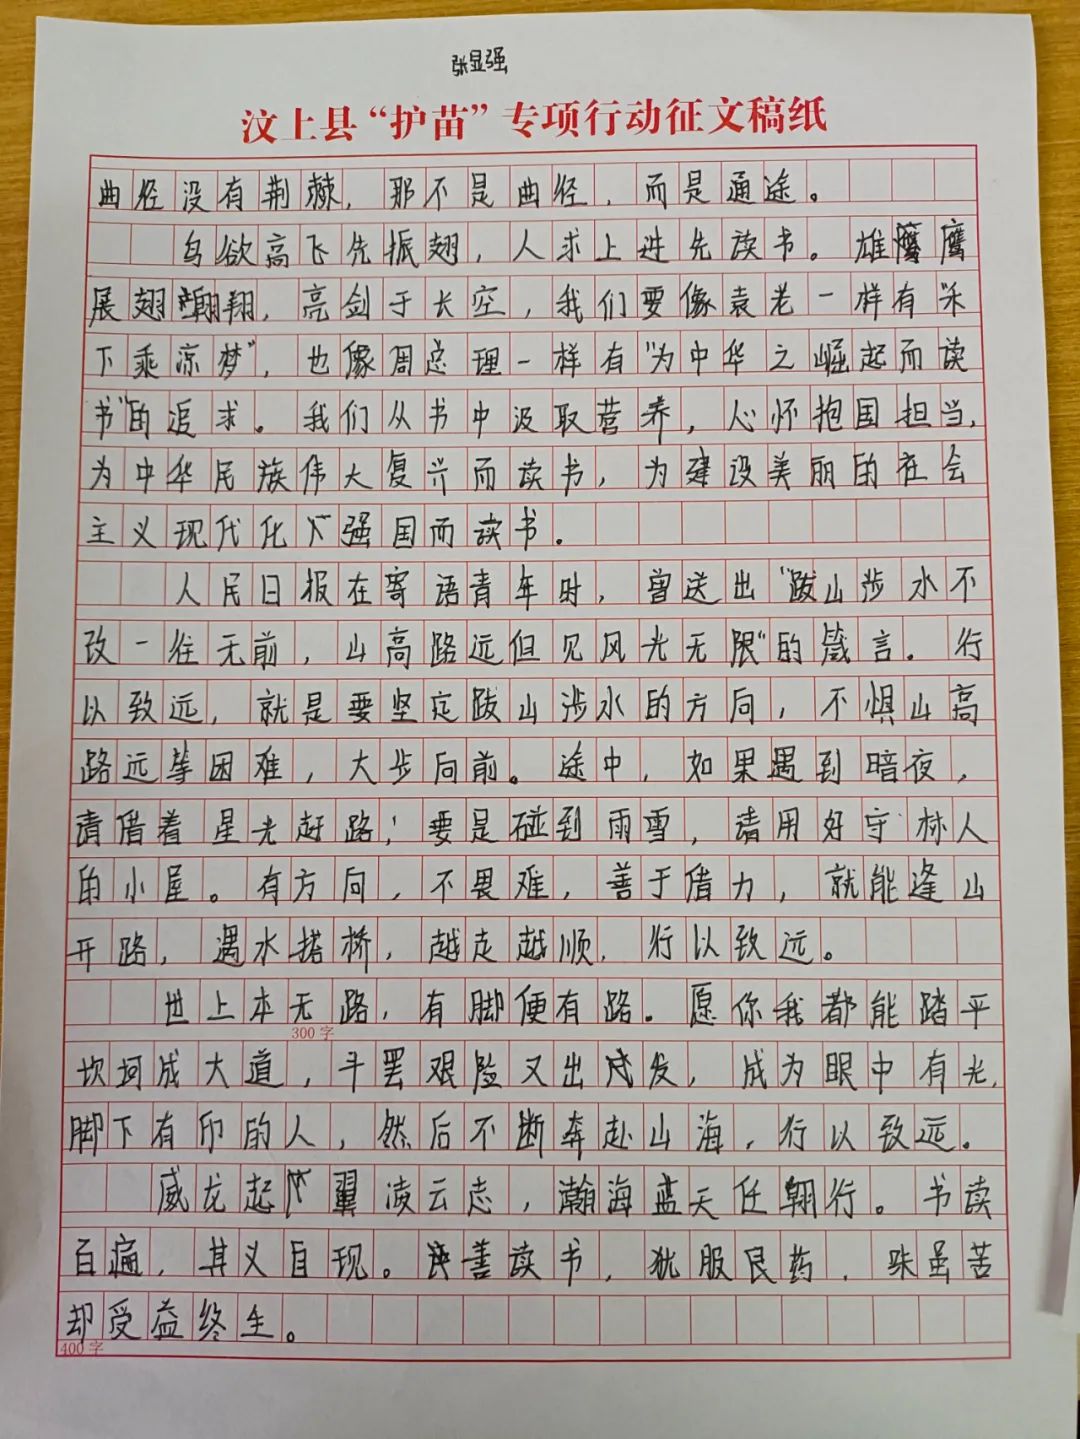 张显强
汶上县“护苗”专项行动征文稿纸
曲径没有荆棘，那不是曲径，而是通途。
鸟欲高飞先振翅，人求上进先读书。雄鹰
展翅翱翔，亮剑于长空，我们要像袁老一样有“禾
下乘凉梦”，也像周总理一样有“为中华之崛起而读
书”的追求。我们从书中汲取营养，心怀抱国担当，
为中华民族伟大复兴而读书，为建设美丽的社会
主义现代化强国而读书．
人民日报在寄语青年时，曾送出“跋山涉水不
改一往无前，山高路远但见风光无限”的箴言．行
以致远，就是要坚定跋山涉水的方向，不惧山高
路远等困难，大步向前。途中，如果遇到暗夜，
请借着星光赶路；要是碰到雨雪，请用好守林人
的小屋。有方向，不畏难，善于借力，就能逢山
开路，遇水搭桥，越走越顺，行以致远。
世上本无路，有脚便有路。愿你我都能踏平
300字
坎坷成大道，斗罢艰险又出发，成为眼中有光，
脚下有印的人，然后不断奔赴山海，行以致远。
威龙起翼凌云志，瀚海蓝天任翱行。书读
百遍，其义自现。善读书，犹服良药．味虽苦
却受益终生。
400字